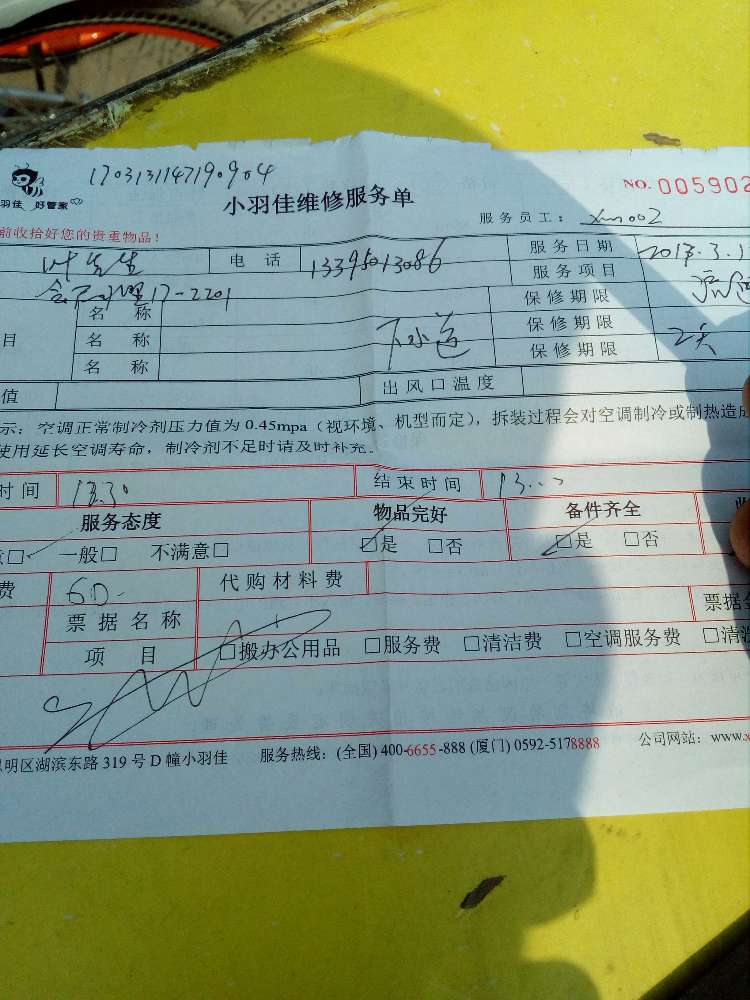 1703131147190904
小羽佳维修服务单
NO. 005902
羽佳 好管家
服务员工: xm002
前收拾好您的贵重物品!
叶先生 电话 13395013086 服务日期 2017.3.1
17-2201 服务项目
名称 保修期限
目 名称 下水道 保修期限
名称 保修期限 2天
值 出风口温度
示: 空调正常制冷剂压力值为 0.45mpa (视环境、机型而定), 拆装过程会对空调制冷或制热造成
使用延长空调寿命, 制冷剂不足时请及时补充。
时间 12.30 结束时间 13.
服务态度 物品完好 备件齐全
意□ 一般□ 不满意□ □是 □否 □是 □否
费 60- 代购材料费
票据名称 票据金
项目 □搬办公用品 □服务费 □清洁费 □空调服务费 □清洗
明区湖滨东路 319 号 D 幢小羽佳 服务热线: (全国) 400-6655-888 (厦门) 0592-5178888 公司网站: www.x